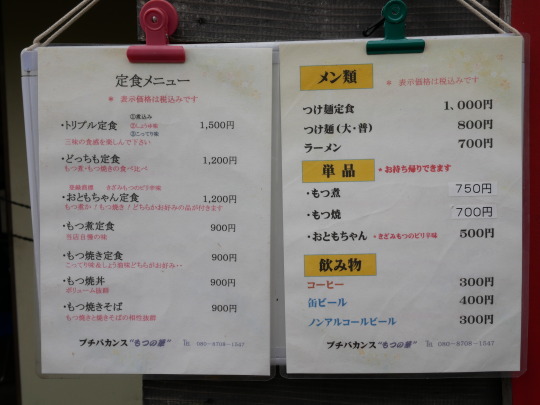 定食メニュー
＊ 表示価格は税込みです
・トリプル定食 ①煮込み ②しょうゆ味 ③こってり味 1,500円
三味の食感を楽しんで下さい
・どっちも定食 1,200円
もつ煮・もつ焼きの食べ比べ
きざみもつのピリ辛味
・おともちゃん定食 1,200円
もつ煮か！もつ焼き！どちらかお好みの品が付きます
・もつ煮定食 900円
当店自慢の味
・もつ焼き定食 900円
こってり味＆しょうゆ味どちらがお好み・・
・もつ焼丼 900円
ボリューム抜群
・もつ焼きそば 900円
もつ焼きと焼きそばの相性抜群
プチバカンス“もつの華” ℡ 080-8708-1547
メン類
＊ 表示価格は税込みです
つけ麺定食 1、000円
つけ麺（大・普） 800円
ラーメン 700円
単品 ＊お持ち帰りできます
・もつ煮 750円
・もつ焼 700円
・おともちゃん ＊きざみもつのピリ辛味 500円
飲み物
コーヒー 300円
缶ビール 400円
ノンアルコールビール 300円
プチバカンス“もつの華” ℡ 080-8708-1547